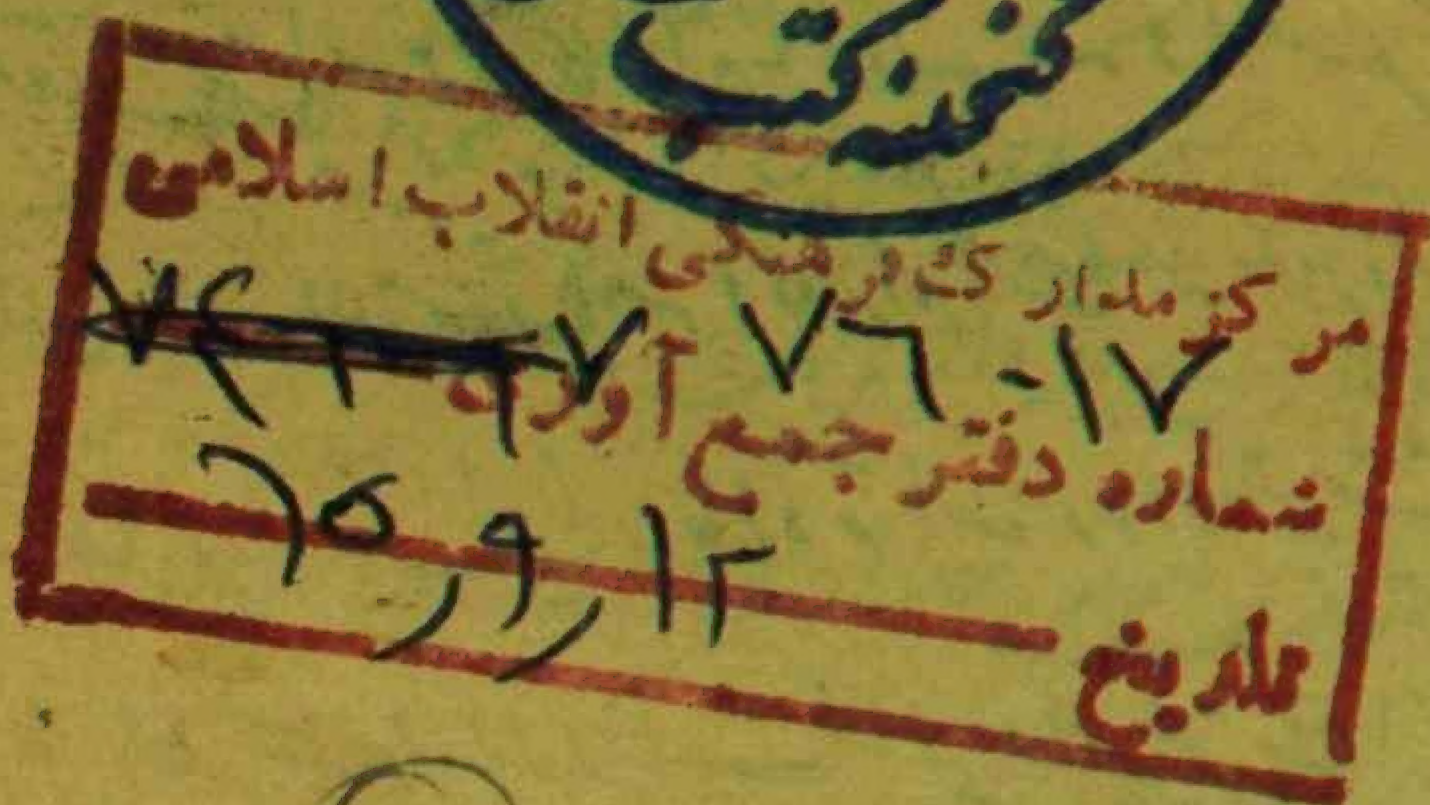 گنجینه کتب
مرکز مدارک فرهنگی انقلاب اسلامی
۱۷-۷۶
شماره دفتر جمع آوری
تاریخ ۱۲ر۹ر۶۵